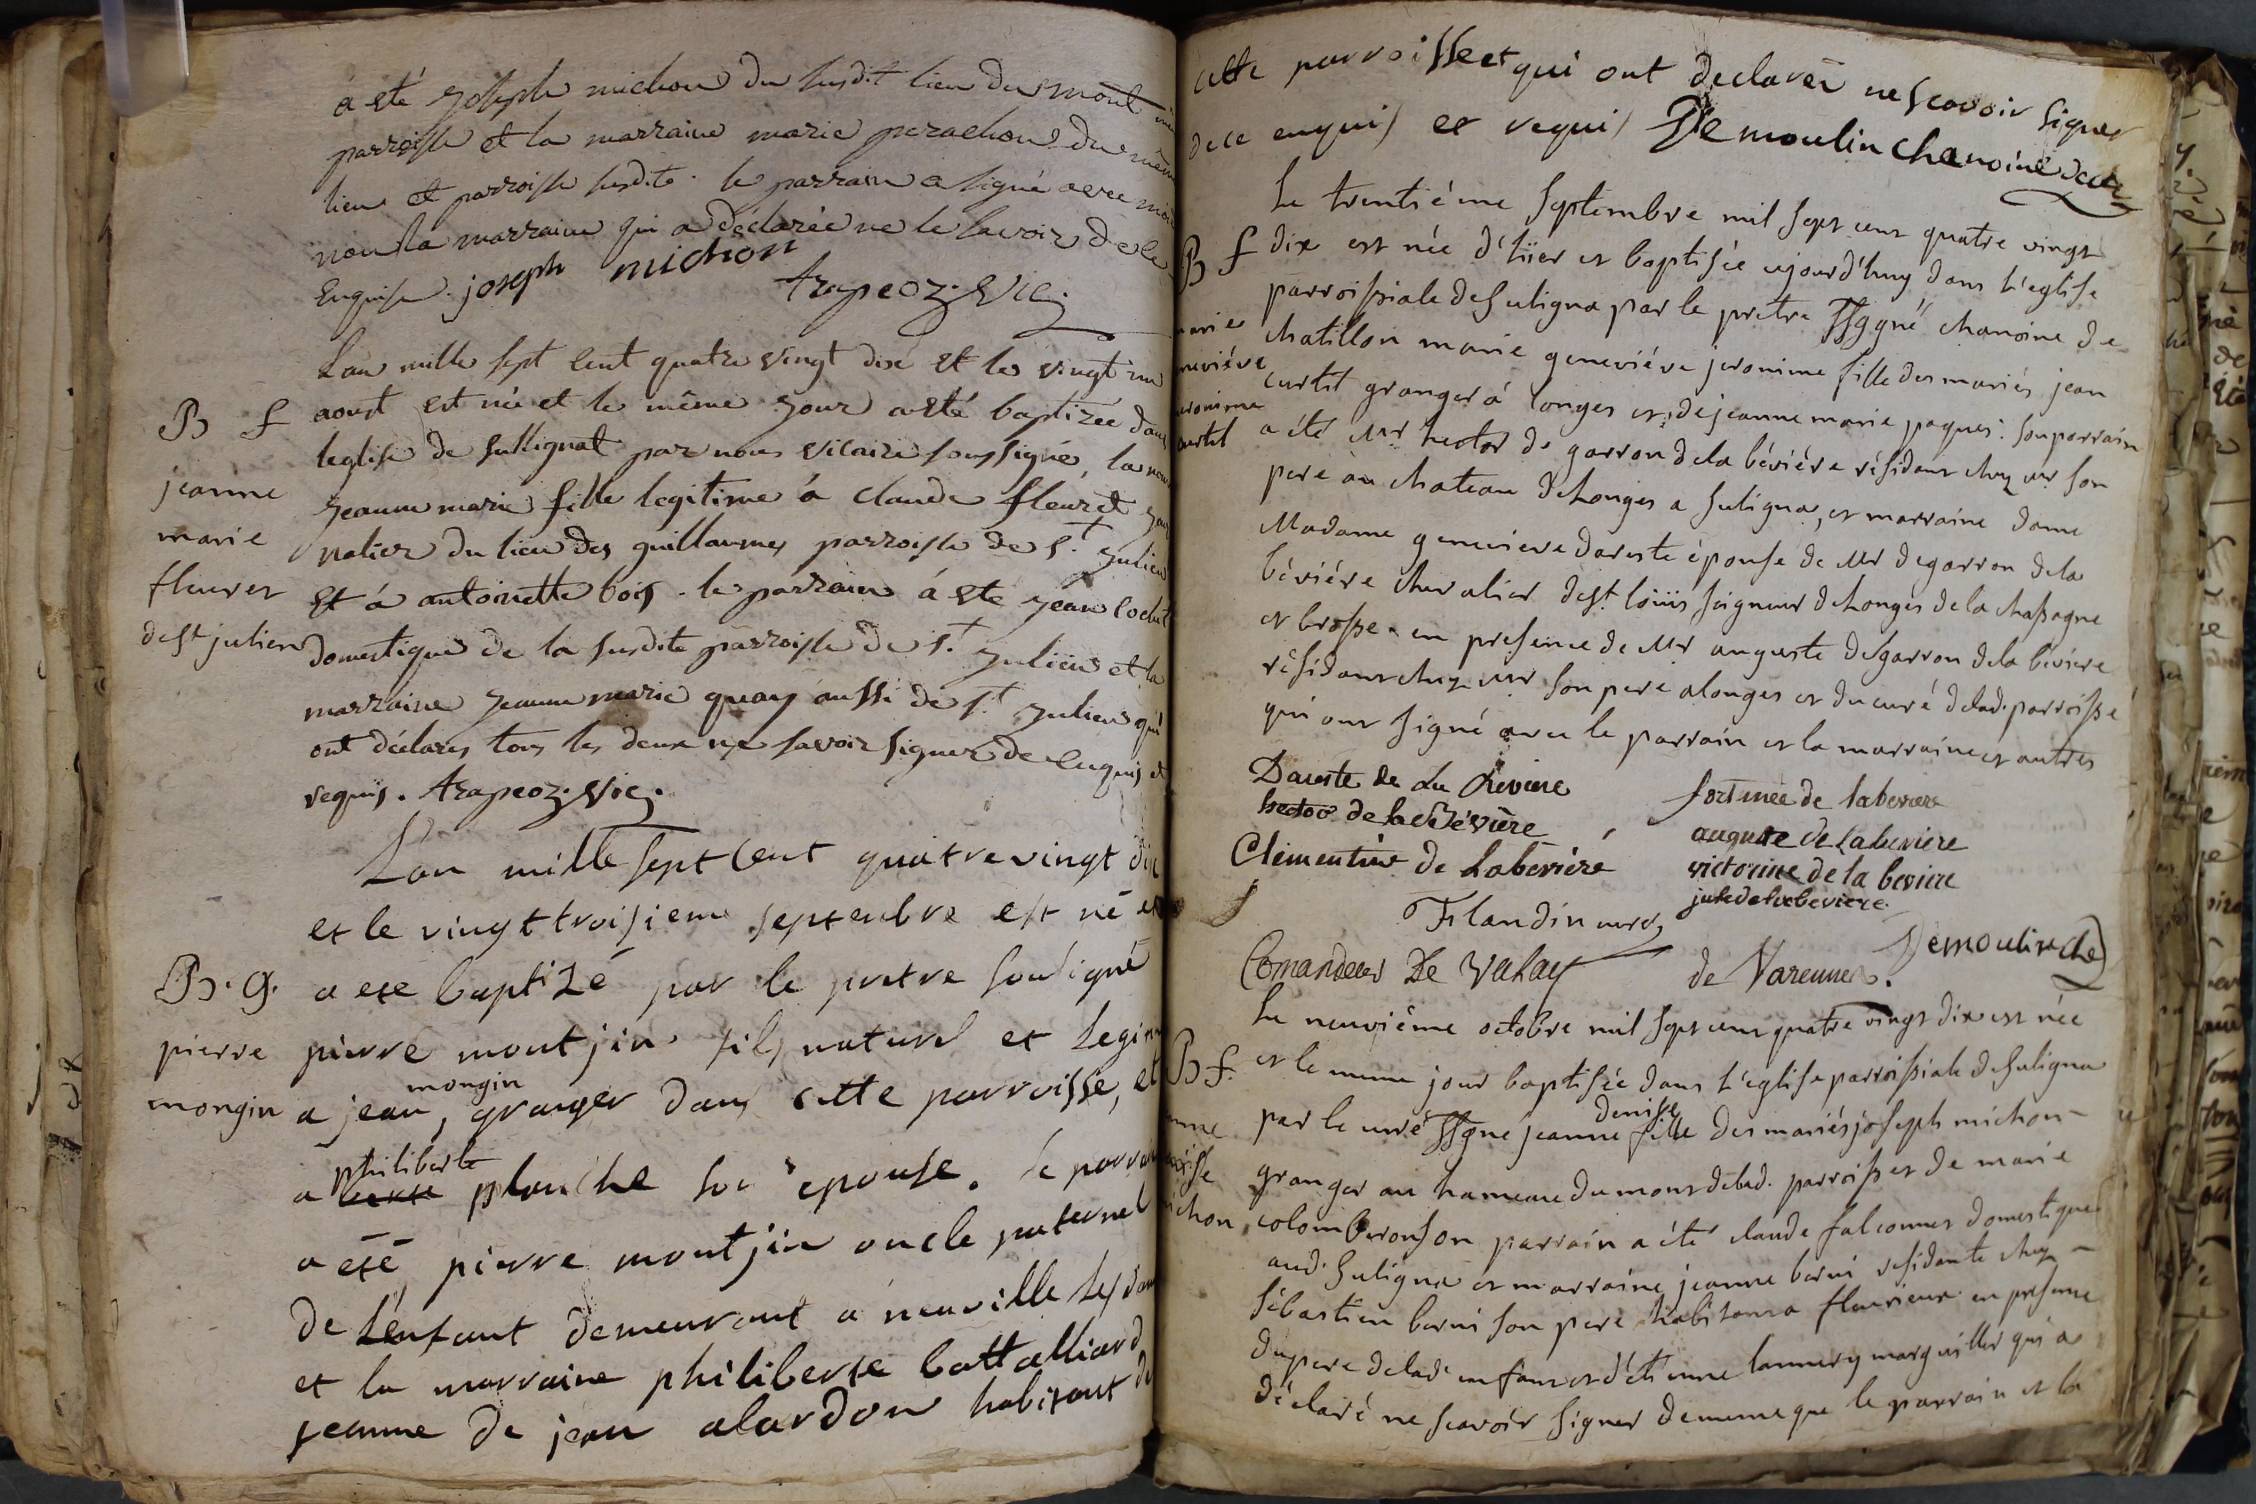 a eté joseph michon du susdit lieu du mont
parroisse et la marraine marie perachon du même
lieu et parroisse susdite. le parrain a signé avec moi
non la marraine qui a déclarée ne le savoir de ce
Enquise. joseph michon
trapeoz. vic.
Lan mille sept cent quatre vingt dix et le vingt un
B f
aoust est née et le même jour a eté baptizée dans
leglise de sulignat par nous vicaire soussigné,
jeanne
marie
fleuret
de st julien
jeanne marie fille legitime à claude fleuret
valier du lieu des guillaumes parroisse de s.t julien
et à antoinette bois. le parrain à eté jean
domestique de la susdite parroisse de s.t julien et la
marraine jeanne marie quay aussi de s.t julien qui
ont déclares tous les deux ne savoir signer de enquis et
requis. trapeoz. vic.
Lan mille sept cent quatre vingt dix
et le vingt troisieme septenbre est né et
B. g.
a ete baptizé par le pretre sousigné
pierre
mongin
pierre montjin fils naturel et legi
a jean mongin, granger dans cette parroisse, et
a philiberte planche son epouse. le parrain
a été pierre montjin oncle paternel
de l'enfant demeurant a neuville les dam
et la marraine philiberte battalliard
femme de jean alardon habitant de
cette parroisse et qui ont declarés ne scavoir signer
de ce enquis et requis Demoulin chanoine
Le trentiéme septembre mil sept cent quatre vingt
B f
dix est née d'hiier et baptisée aujourd'huy dans l'eglise
parroissiale de suligna par le pretre ssgné chanoine de
marie
neviéve
eronime
curtit
chatillon marie geneviéve jeronime fille des mariés jean
curtit granger à longes et de jeanne marie paques. son parrain
a été Mr hector de garron de la béviére résidant chez mr son
pere au chateau de Longes a suligna, et marraine dame
Madame genevieve dareste épouse de Mr de garron de la
béviére chevalier de st. loüis seigneur de Longes de la chassagne
et brosse. en presence de Mr auguste de garron de la béviere
résidant chez mr son pere a longes et du curé de lad. parroisse
qui ont signé avec le parrain et la marraine et autres
Dareste de La Béviere
hector de la Bévière
Clementine de Laberiére
fortunée de labeviere
auguste de Labeviere
victorine de la beviere
jule de la beviere
Flandin curé
Demoulin che
Comandeur De Valay
de Varennes.
Le neuviéme octobre mil sept cent quatre vingt dix est née
B f.
et le meme jour baptisée dans l'eglise parroissiale de suligna
par le curé ssgné jeanne denise fille des mariés joseph michon
nne
nise
ichon
granger au hameau du mont de lad. parroisse et de marie
colomberon son parrain a été claude falconnet domestique
aud. suligna et marraine jeanne borni residante chez
sébastien borni son pere habitant a fleurieux en presence
du pere de lad. enfant et d'étienne lannery marguillier qui a
déclaré ne scavoir signer de meme que le parrain et la